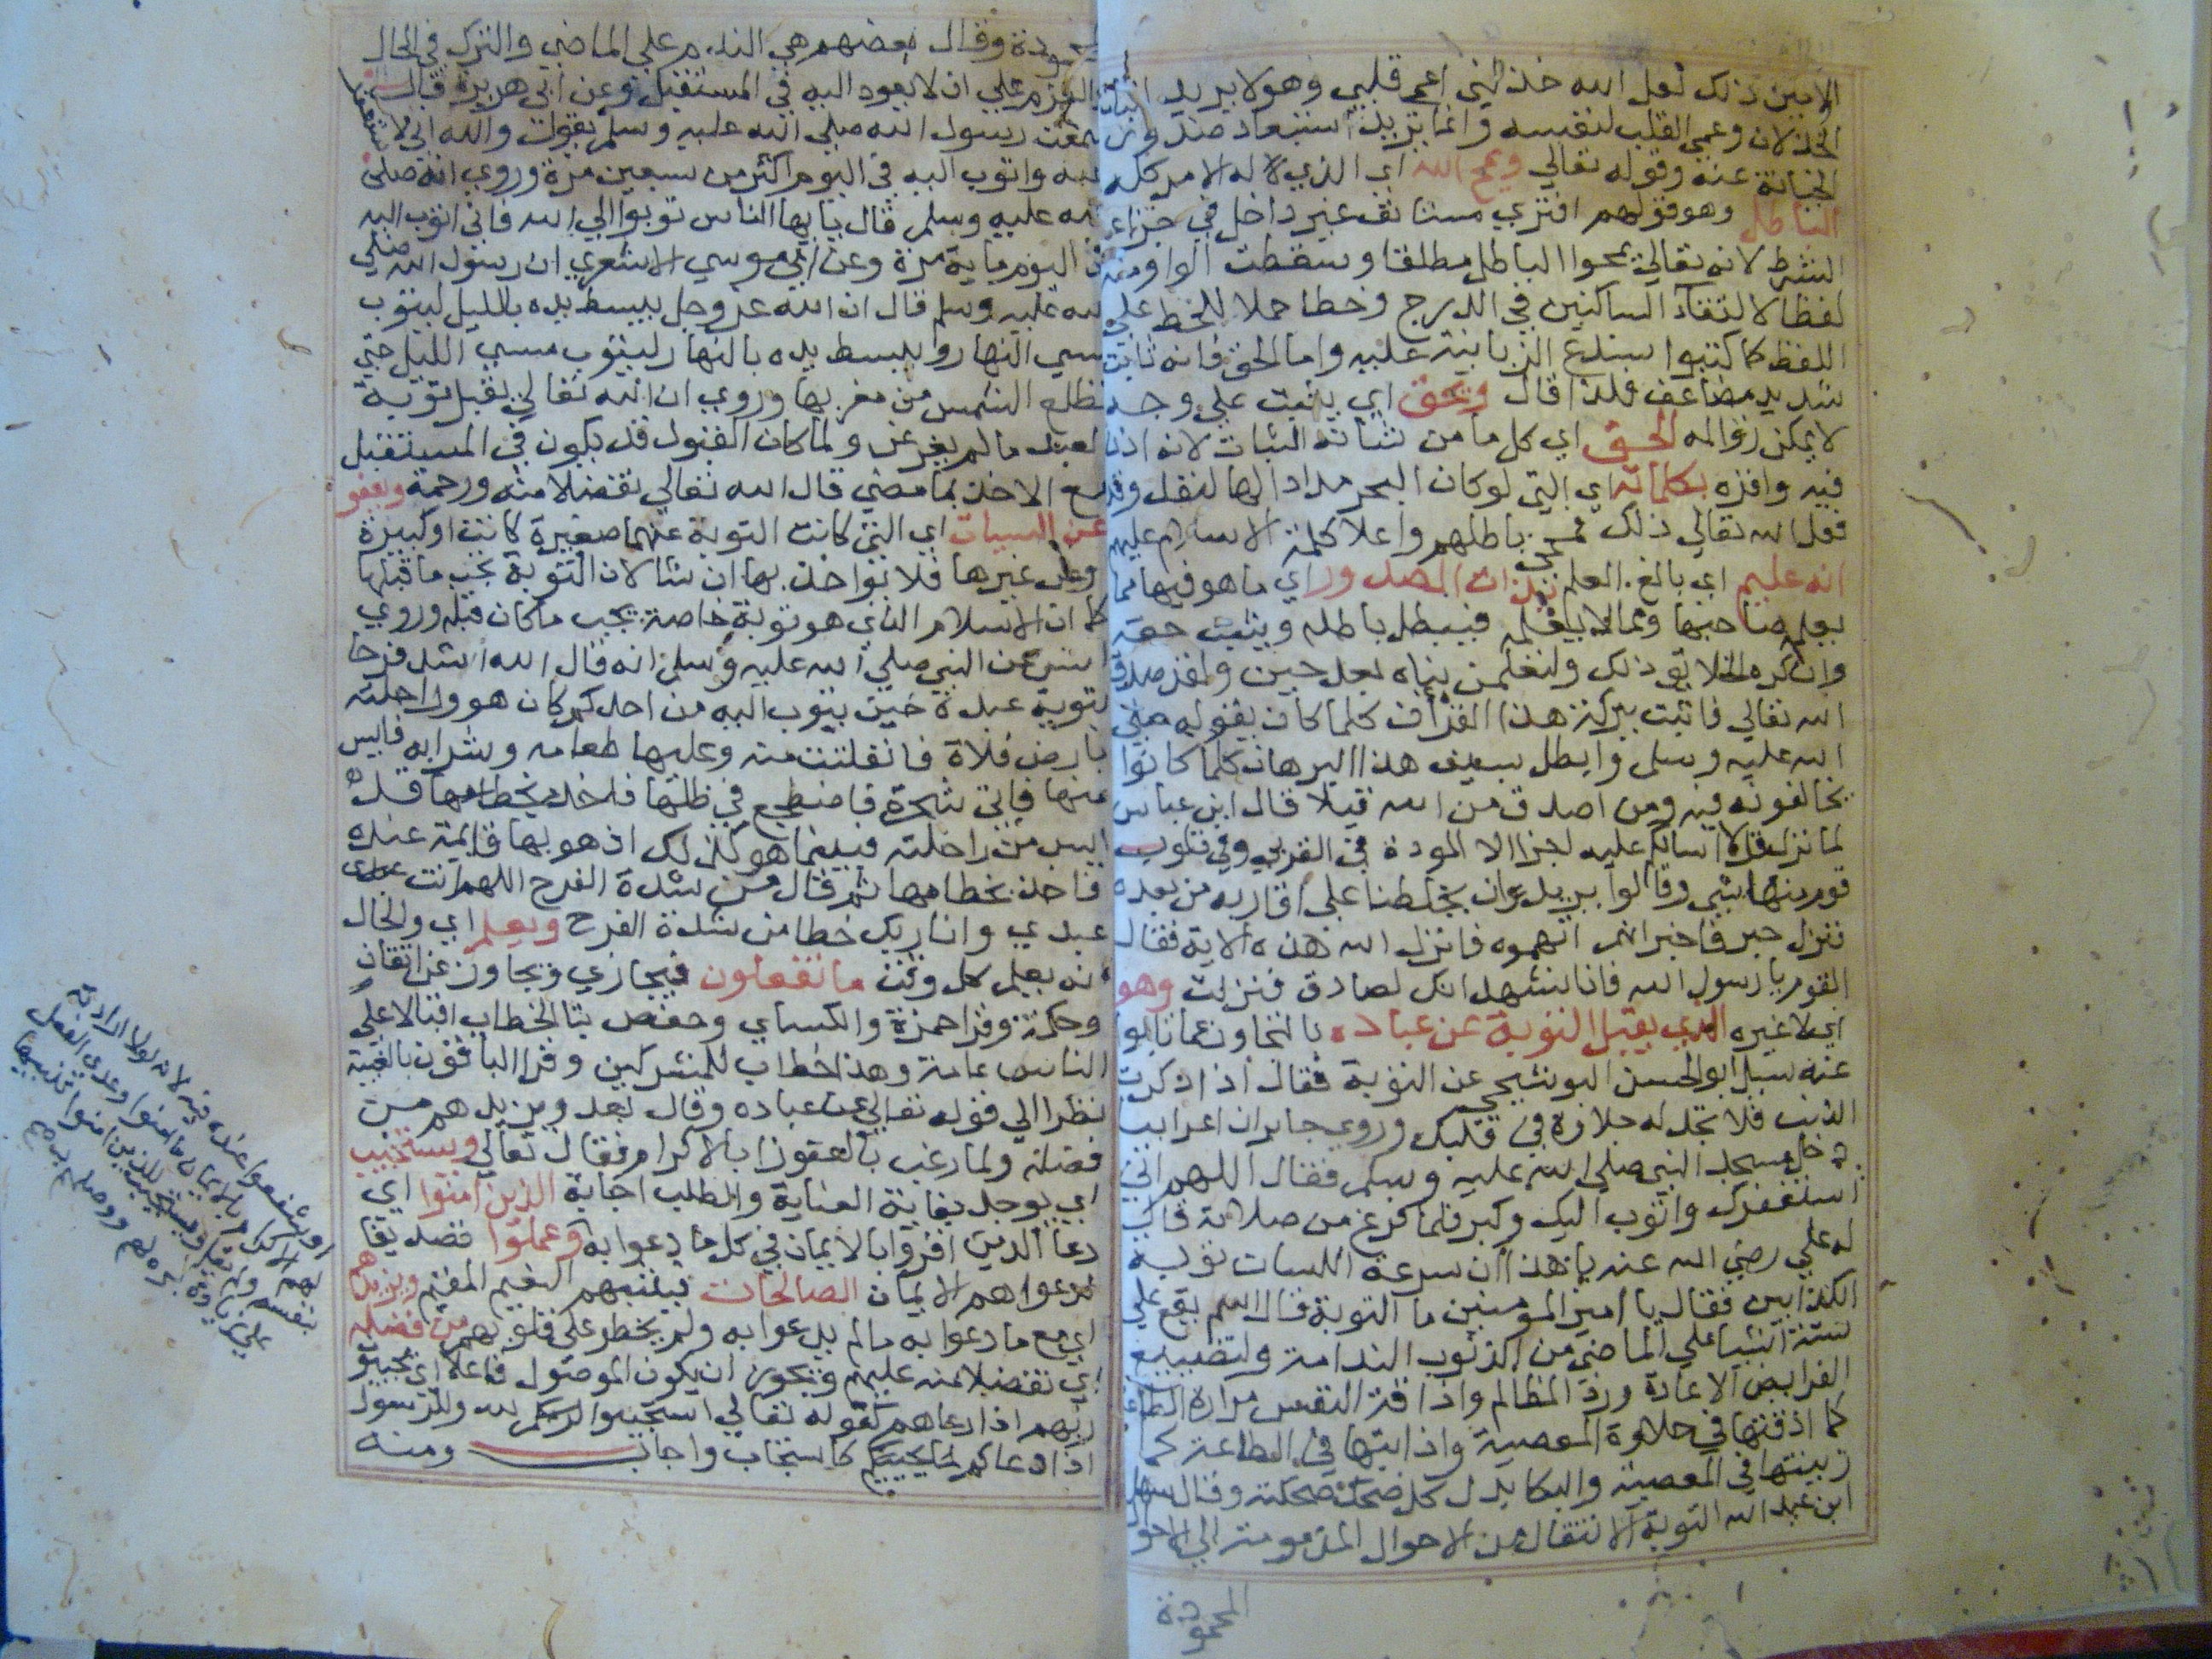 الامين ذلك لعل الله خذلني اعمى قلبي وهو لا يريد اثبات
الخذلان وعمى القلب لنفسه وانما يريد استبعاد صدور
الخيانة عنه وقوله تعالي ويمح الله اي الذي لا له الامر كله
الباطل وهو قولهم افتري مستانف غير داخل في جزاء
الشرط لانه تعالي يمحوا الباطل مطلقا وسقطت الواو منه
لفظا لالتقاء الساكنين في الدرج وخطا حملا للخط علي
اللفظ كما كتبوا سندع الزبانية عليه واما الحق فانه ثابت
شديد مضاعف فلذا قال ويحق اي يثبت علي وجه
لا يمكن زواله الحق اي كل ما من شانه الثبات لانه اذن
فيه واقره بكلماته اي التي لو كان البحر مدادا لها لنفد وقد
فعل الله تعالي ذلك فمحى باطلهم واعلا كلمة الاسلام عليهم
انه عليم اي بالغ العلم بذات الصدور اي ما هو فيها مما
يعلمه صاحبها ومما لا يعلمه فيبطل باطله ويثبت حقه
وان كره الخلايق ذلك ولتعلمن نباه بعد حين ولقد صدق
الله تعالي فاثبت ببركة هذا القرآن كلما كان يقوله صلي
الله عليه وسلم وابطل بسيف هذا البرهان كلما كانوا
يخالفونه فيه ومن اصدق من الله قيلا قال ابن عباس
لما نزل قل لا اسالكم عليه اجرا الا المودة في القربي وقع في قلوب
قوم منها شي وقالوا يريد ان يحثنا علي اقاربه من بعده
فنزل جبر فاخبر انهم اتهموه فانزل الله هذه الاية فقال
القوم يا رسول الله فانا نشهد انك لصادق فنزلت وهو
اي لا غيره الذي يقبل التوبة عن عباده بالتجاوز عما تابوا
عنه سيل ابو الحسن البوشنجي عن التوبة فقال اذا ذكرت
الذنب فلا تجد له حلاوة في قلبك وروي جابر ان اعرابيا
دخل مسجد النبي صلي الله عليه وسلم فقال اللهم اني
استغفرك واتوب اليك وكبر فلما فرغ من صلاته قال
له علي رضي الله عنه يا هذا ان سرعة اللسان توبة
الكذابين فقال يا امير المومنين ما التوبة قال اسم يقع علي
ستة اشيا علي الماضي من الذنوب الندامة ولتضييع
الفرايض الاعادة ورد المظالم واذاقة النفس مرارة الطاعة
كما اذقتها في حلاوة المعصية واذابتها في الطاعة كما
زينتها في المعصية والبكا بدل كل ضحك ضحكته وقال سهل
ابن عبد الله التوبة الانتقال من الاحوال المذمومة الي الاحوال
المحمودة
ـودة وقال بعضهم هي الندم علي الماضي والترك في الحال
والعزم علي ان لا يعود اليه في المستقبل وعن ابي هريرة قال
سمعت رسول الله صلي الله عليه وسلم يقول والله اني لاستغفر
الله واتوب اليه في اليوم اكثر من سبعين مرة وروي انه صلي
الله عليه وسلم قال يا ايها الناس توبوا الي الله فاني اتوب اليه
في اليوم ماية مرة وعن ابي موسي الاشعري ان رسول الله صلي
الله عليه وسلم قال ان الله عز وجل يبسط يده بالليل ليتوب
مسي النهار ويبسط يده بالنهار ليتوب مسي الليل حتي
تطلع الشمس من مغربها وروي ان الله تعالي يقبل توبة
العبد ما لم يغرغر ولما كان القبول قد يكون في المستقبل
مع الاخذ بما مضي قال الله تعالي تفضلا منه ورحمة ويعفو
عن السيات اي التي كانت التوبة عنها صغيرة كانت او كبيرة
وعن غيرها فلا يواخذ بها ان شا لان التوبة تجب ما قبلها
كما ان الاسلام الذي هو توبة خاصة يجب ما كان قبله وروي
انس عن النبي صلي الله عليه وسلم انه قال الله اشد فرحا
بتوبة عبده حين يتوب اليه من احدكم كان هو وراحلته
بارض فلاة فانفلتت منه وعليها طعامه وشرابه فايس
منها فاتي شجرة فاضطجع في ظلها قد
ايس من راحلته فبينما هو كذلك اذ هو بها قايمة عنده
فاخذ بخطامها ثم قال من شدة الفرح اللهم انت
عبدي وانا ربك خطا من شدة الفرح ويعلم اي والحال
انه يعلم كل وقت ما تفعلون فيجازي ويتجاوز عن اتقان
وحكمة وقرا حمزة والكساي وحفص بتا الخطاب اقبالا علي
الناس عامة وهذا خطاب للمشركين وقرا الباقون بالغيبة
نظرا الي قوله تعالي عن عباده وقال بعد ويزيدهم من
فضله ولما رغب بالعفو زاد بالاكرام فقال تعالي ويستجيب
اي يوجد بغاية العناية والطلب اجابة الذين امنوا اي
دعا الذين اقروا بالايمان في كل ما دعوا به وعملوا تصديقا
لدعواهم الايمان الصالحات فيثيبهم النعيم المقيم ويزيدهم
اي مع ما دعوا به ما لم يدعوا به ولم يخطر علي قلوبهم من فضله
اي تفضلا منه عليهم ويجوز ان يكون الموصول فاعلا اي يجيبون
ربهم اذا دعاهم كقوله تعالي استجيبوا لله وللرسول
اذا دعاكم لما يحييكم كاستجاب واجاب ومنه